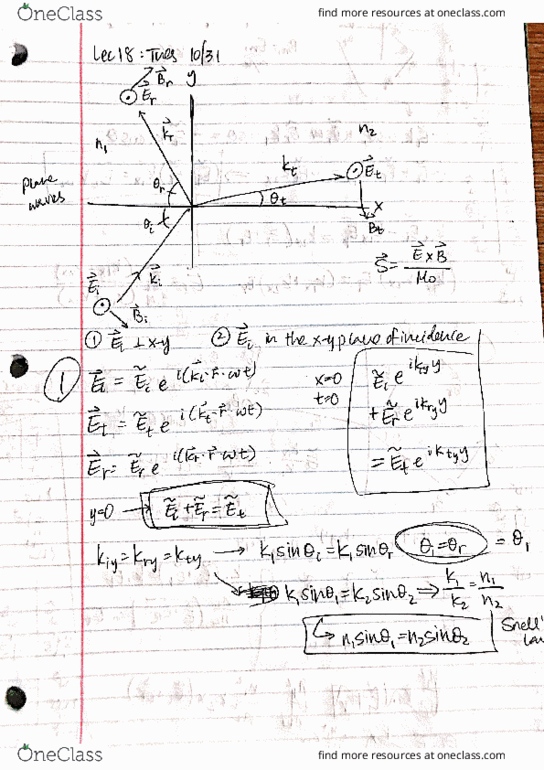 OneClass
find more resources at oneclass.com
Lec 18 : Tues 10/31
y
B⃗r
E⃗r
k⃗r
n₁
n₂
plane waves
θr
θi
kt
θt
E⃗t
x
B⃗t
S⃗ = E⃗ x B⃗ / μ₀
E⃗i
k⃗i
B⃗i
① E⃗i ⊥ x-y ② E⃗i in the x-y plane of incidence
① E⃗i = Ẽi e^i(k⃗i·r⃗-ωt)
E⃗t = Ẽt e^i(k⃗t·r⃗-ωt)
E⃗r = Ẽr e^i(k⃗r·r⃗-ωt)
x=0
t=0
Ẽi e^ikiyy
+ Ẽr e^ikryy
= Ẽt e^iktyy
y=0 → Ẽi + Ẽr = Ẽt
kiy = kry = kty → k₁sinθi = k₁sinθr θi=θr = θ₁
k₁sinθ₁ = k₂sinθ₂ ⇒ k₁/k₂ = n₁/n₂
↳ n₁sinθ₁ = n₂sinθ₂ Snell'
OneClass
find more resources at oneclass.com